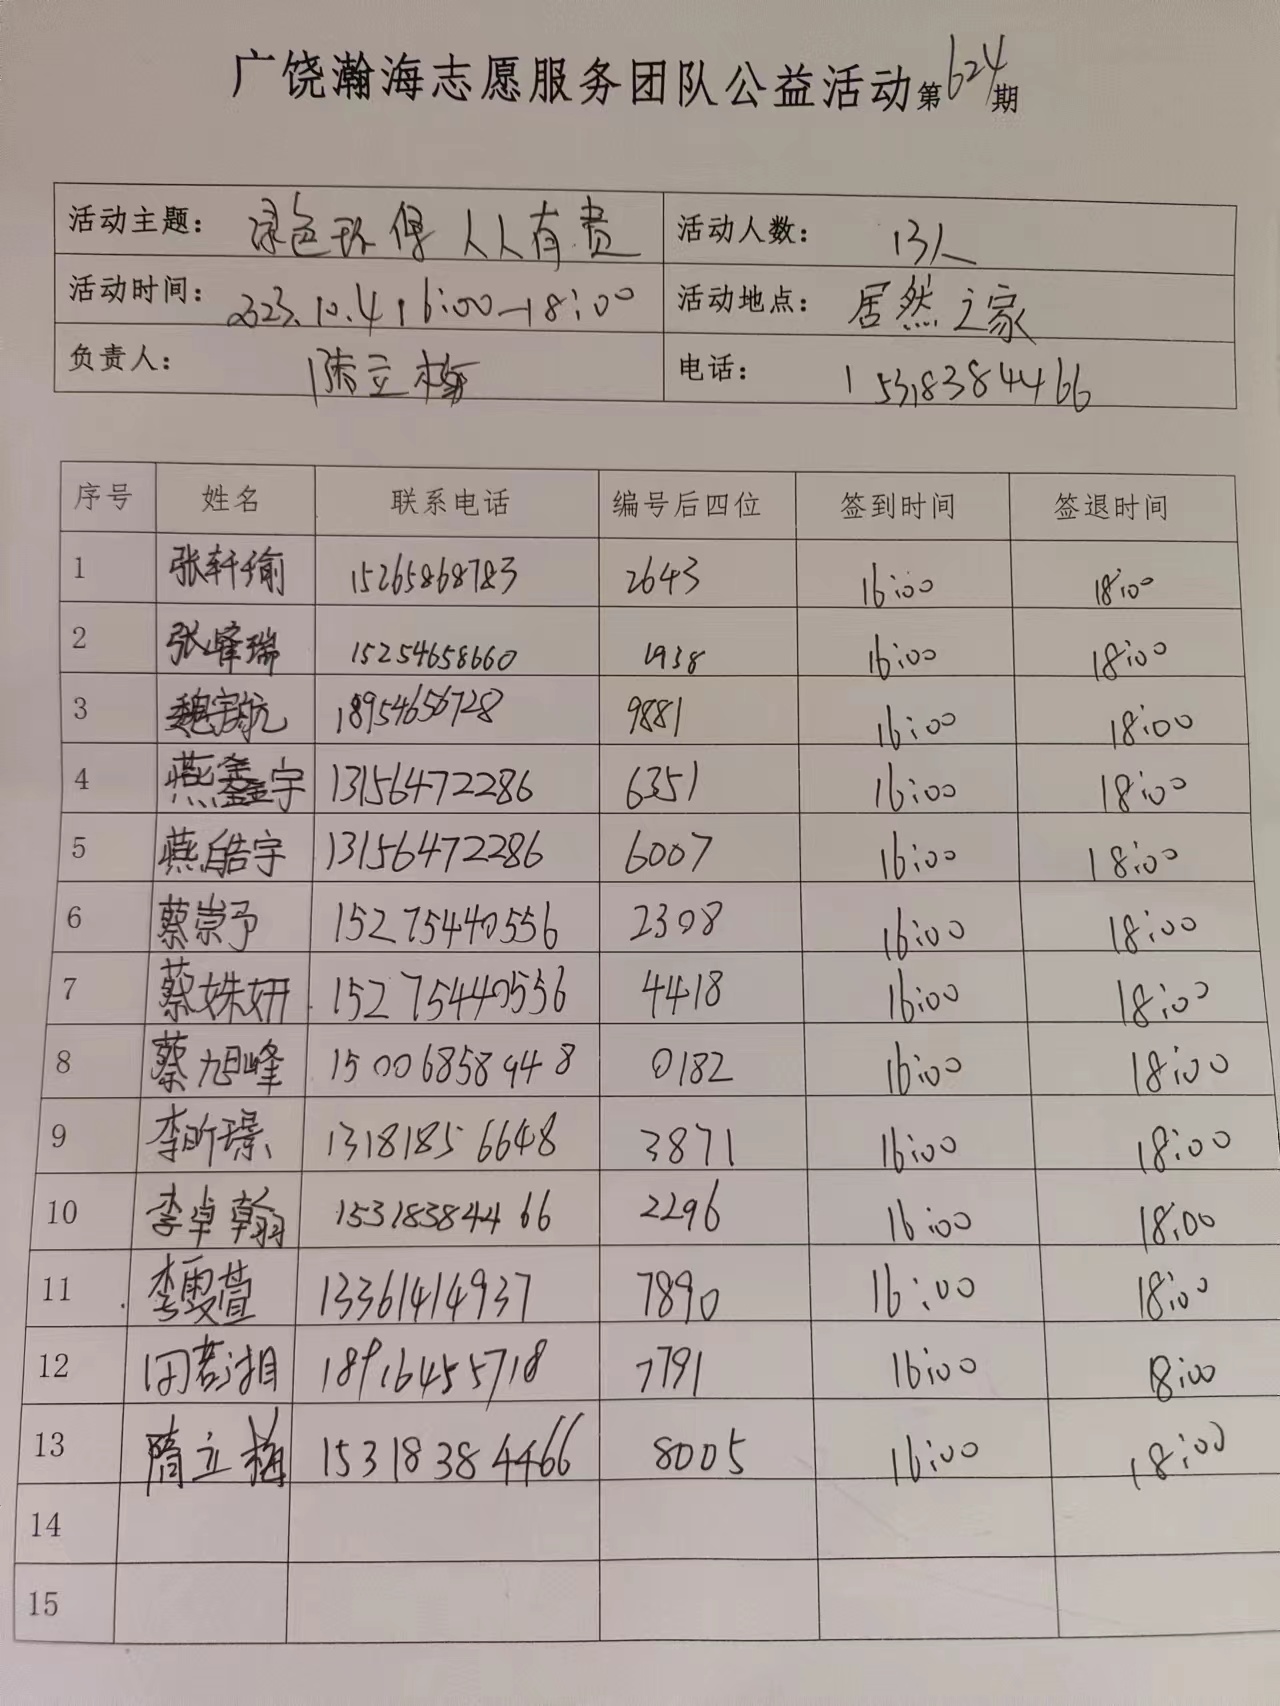 广饶瀚海志愿服务团队公益活动第624期
活动主题： 绿色环保 人人有责 活动人数： 13人
活动时间： 2023.10.4 16:00—18:00 活动地点： 居然之家
负责人： 隋立梅 电话： 15318384466
序号 姓名 联系电话 编号后四位 签到时间 签退时间
1 张轩瑜 15265868783 2643 16:00 18:00
2 张峰瑞 15254658660 1938 16:00 18:00
3 魏宇航 18954656728 9881 16:00 18:00
4 燕鑫宇 13156472286 6351 16:00 18:00
5 燕皓宇 13156472286 6007 16:00 18:00
6 蔡崇予 15275440556 2308 16:00 18:00
7 蔡姝妍 15275440556 4418 16:00 18:00
8 蔡旭峰 15006858948 0182 16:00 18:00
9 李昕璟 13181856648 3871 16:00 18:00
10 李卓翰 15318384466 2296 16:00 18:00
11 李雯萱 13361414937 7890 16:00 18:00
12 闵若湘 18916455718 7791 16:00 18:00
13 隋立梅 15318384466 8005 16:00 18:00
14
15